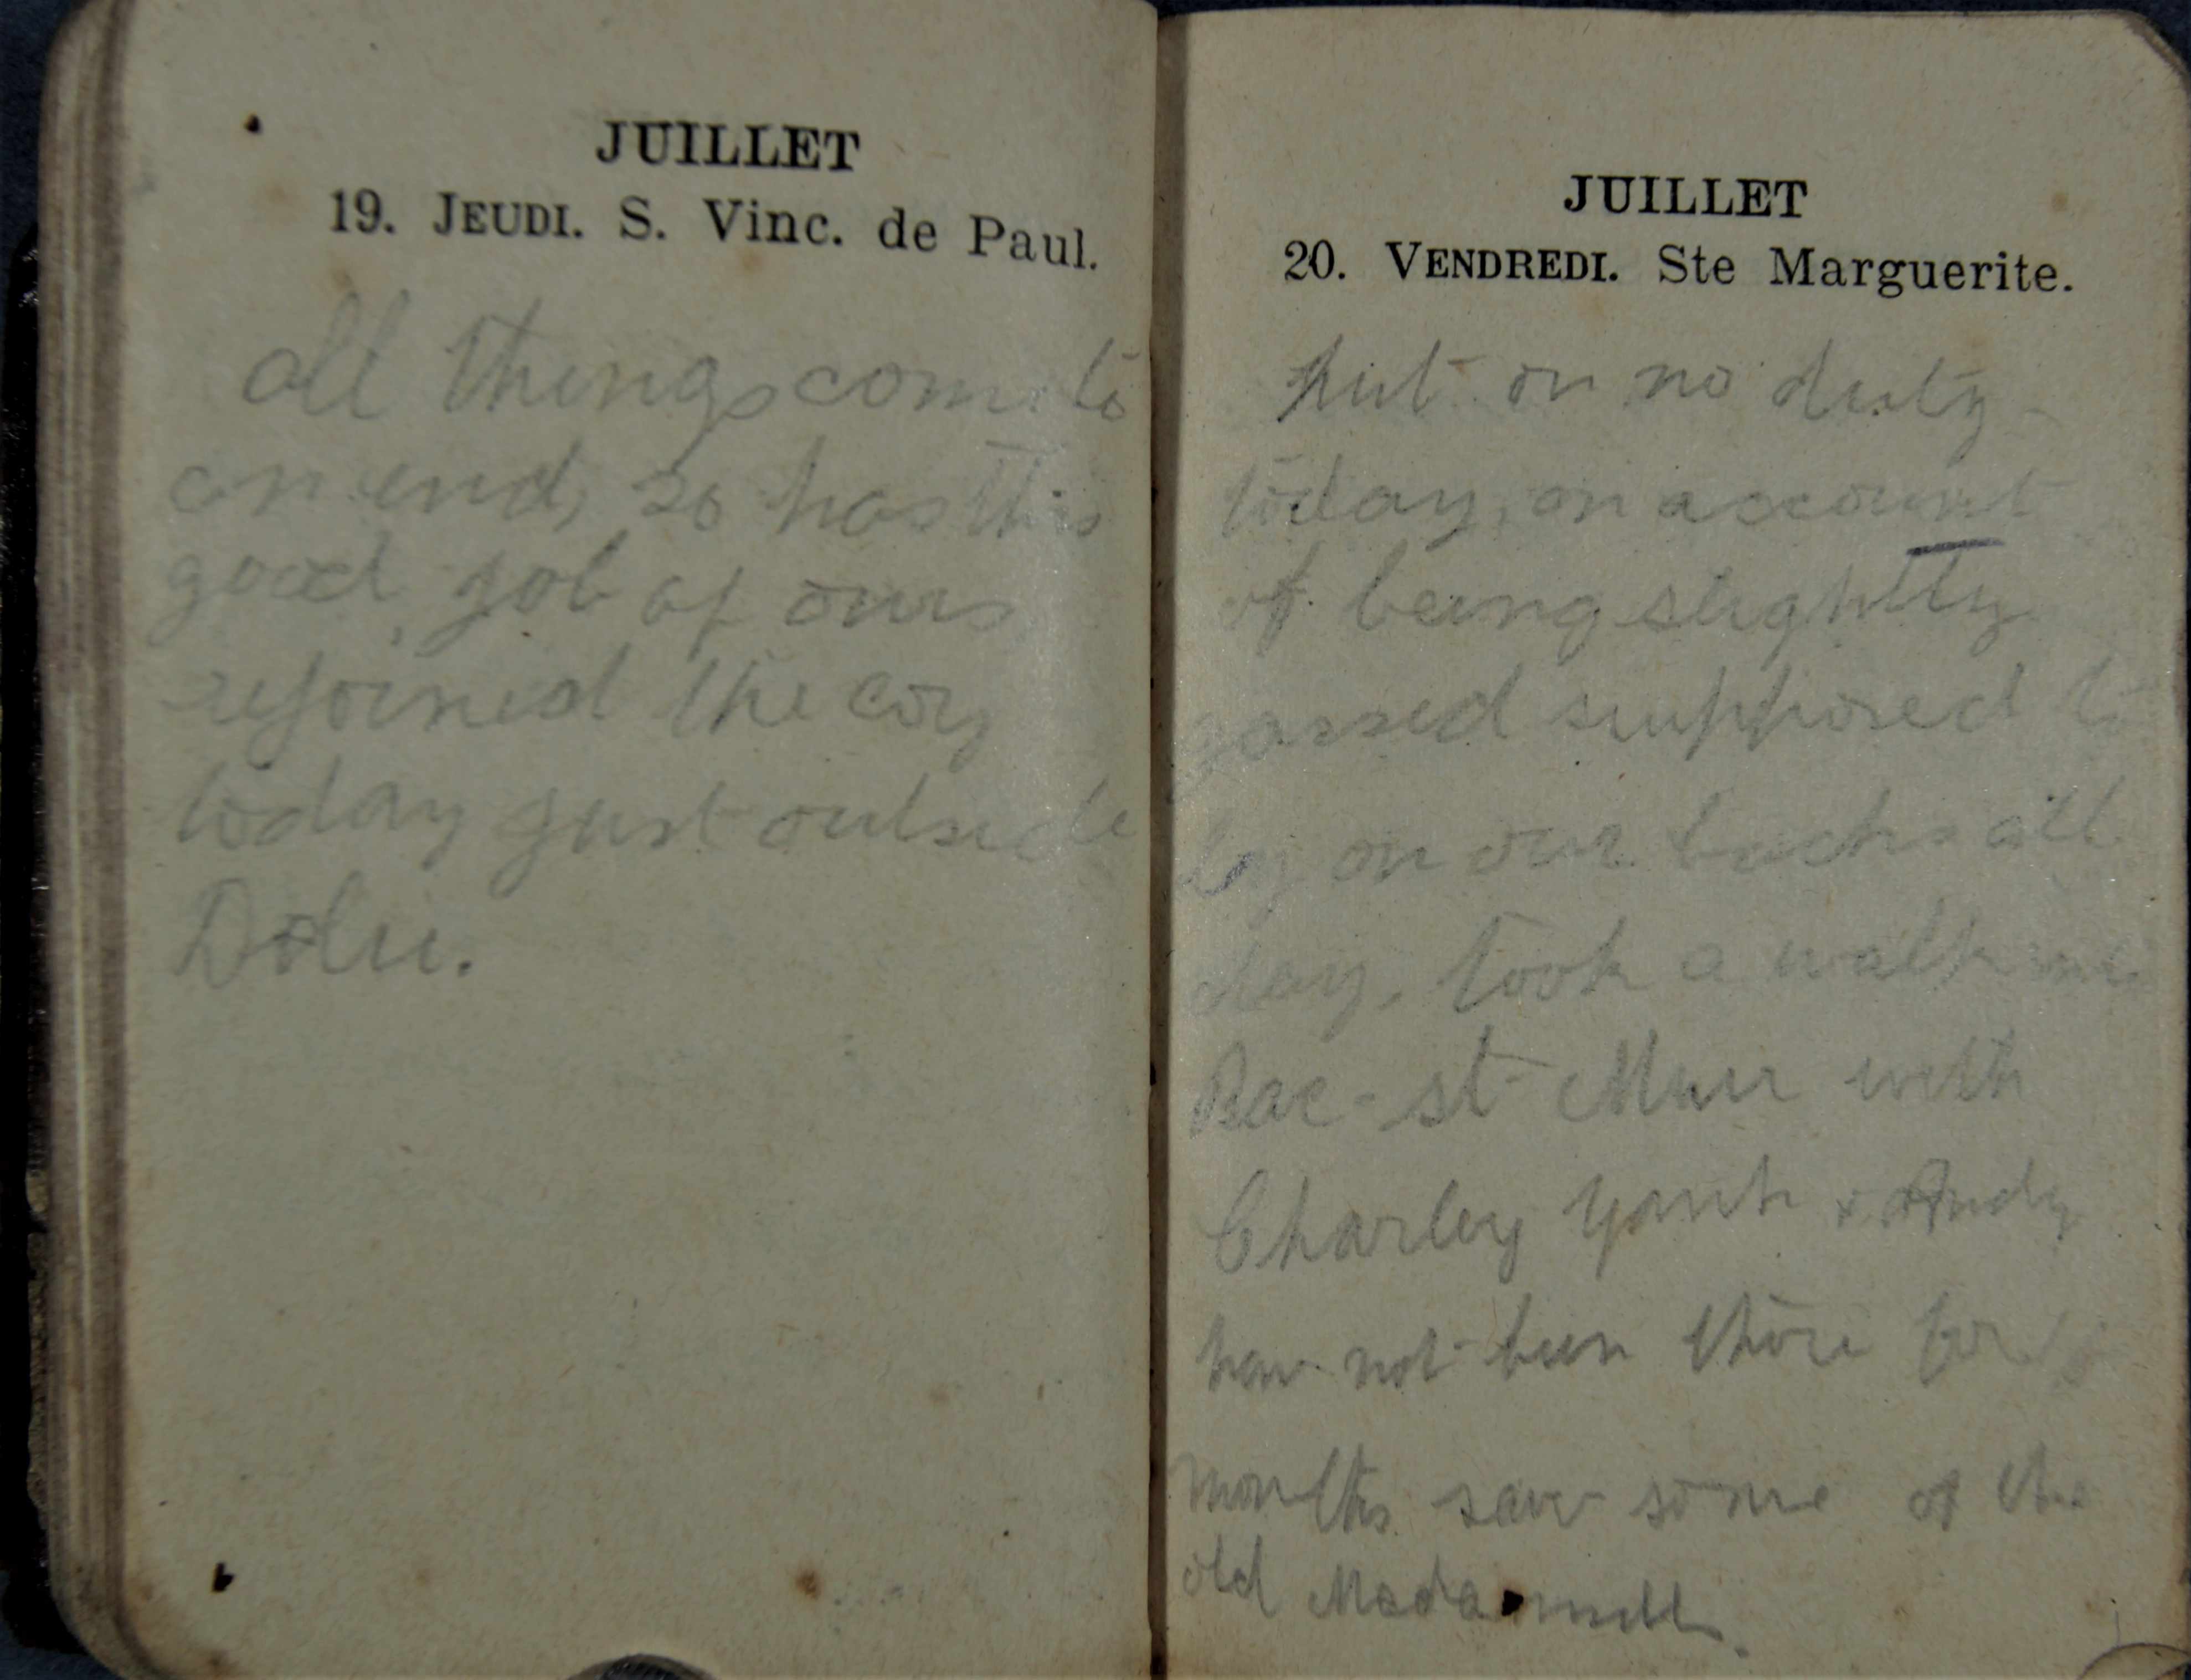 JUILLET
19. JEUDI. S. Vinc. de Paul.
all things come to
an end, so has this
good job of ours
rejoined the coy
today just outside
JUILLET
20. VENDREDI. Ste Marguerite.
Put on no duty
today, on account
of being slightly
gassed supposed to
lay on our backs all
day, took a walk
Bac-st-Maur with
Charley & Andy
have not been there for
months saw some of the
old